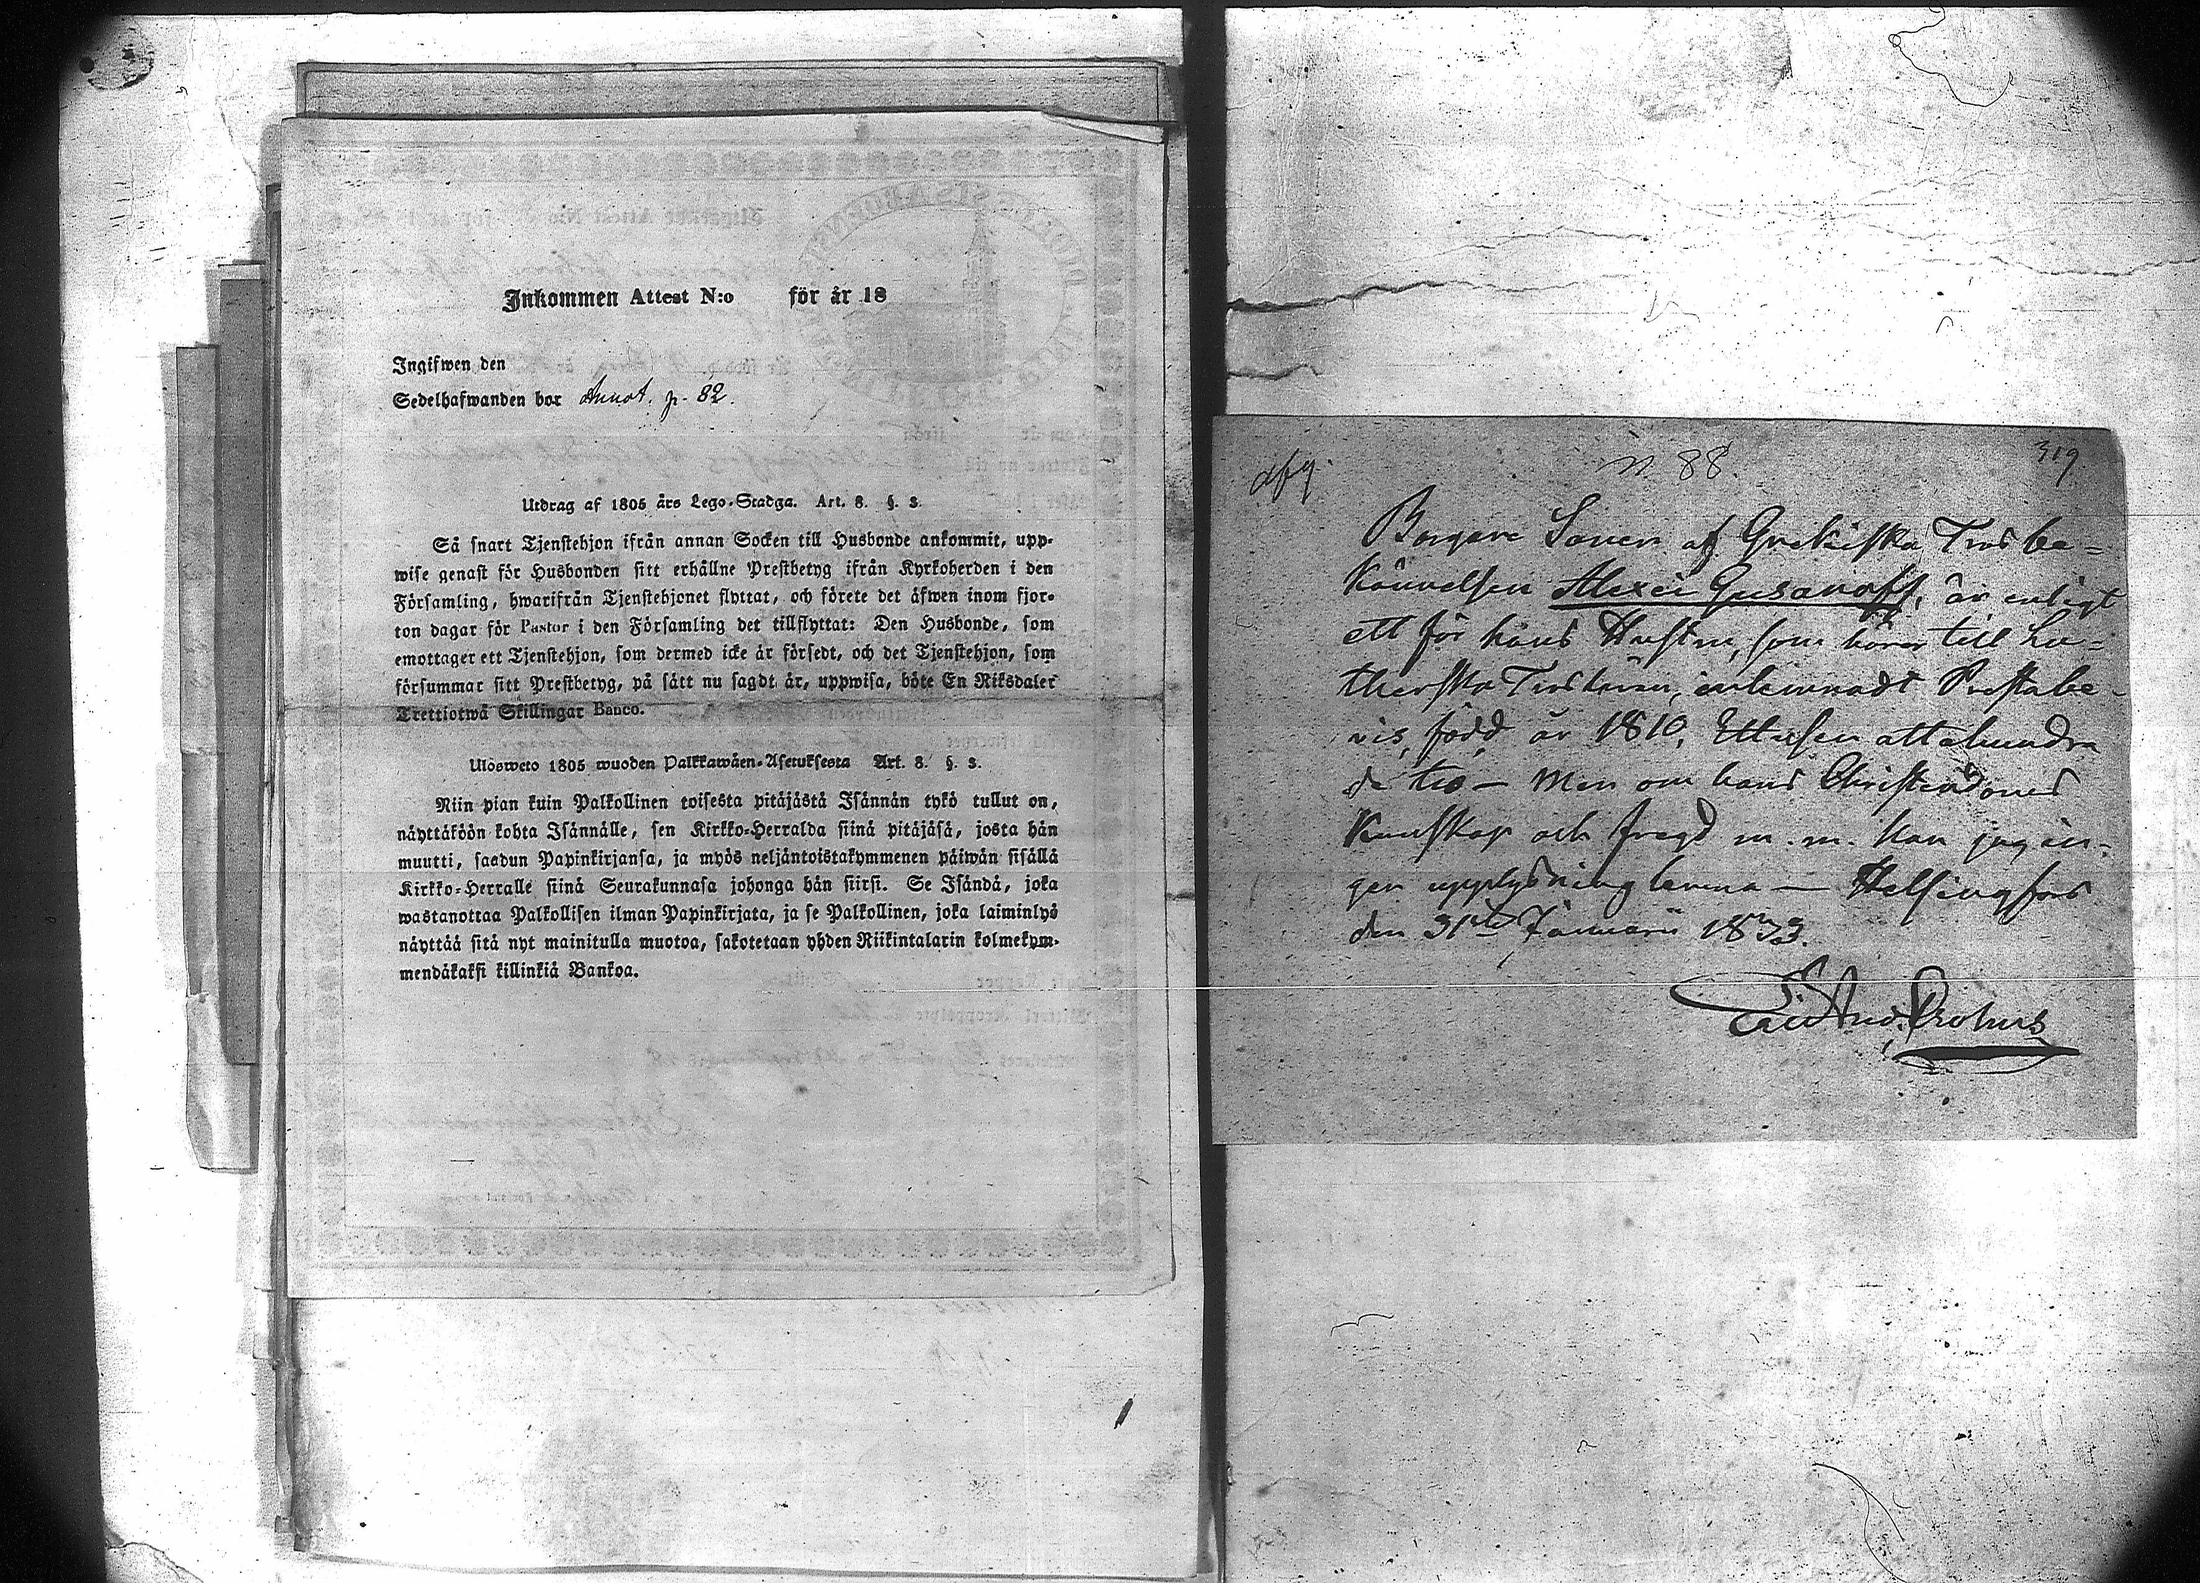 Inkommen Attest N:o för år 18
Ingifwen den
Sedelhafwanden bor Annot. p. 82.
Utdrag af 1805 års Lego-Stadga. Art. 8. §. 3.
Så snart Tjenstehjon ifrån annan Socken till Husbonde ankommit, upp-
wise genast för Husbonden sitt erhållne Prestbetyg ifrån Kyrkoherden i den
Församling, hwarifrån Tjenstehjonet flyttat, och förete det äfwen inom fjor-
ton dagar för Pastor i den Församling det tillflyttat: Den Husbonde, som
emottager ett Tjenstehjon, som dermed icke är försedt, och det Tjenstehjon, som
försummar sitt Prestbetyg, på sätt nu sagdt är, uppwisa, böte En Riksdaler
Trettiotwå Skillingar Banco.
Ulosweto 1805 wuoden Palkkawäen-Asetuksesta Art. 8. §. 3.
Niin pian kuin Palkollinen toisesta pitäjästä Isännän tykö tullut on,
näyttäköön kohta Isännälle, sen Kirkko-Herralda siinä pitäjäsä, josta hän
muutti, saadun Papinkirjansa, ja myös neljäntoistakymmenen päiwän sisällä
Kirkko-Herralle siinä Seurakunnasa johonga hän siirsi. Se Isändä, joka
wastanottaa Palkollisen ilman Papinkirjata, ja se Palkollinen, joka laiminlyö
näyttää sitä nyt mainitulla muotoa, sakotetaan yhden Riikintalarin kolmekym-
mendäkaksi killinkiä Bankoa.
afg. n 88. 319
Borgare Sonen af Grekiska Tros be-
kännelsen Alexei Gusanoff, är enligt
ett för hans Hustru, som hörer till Lu-
therska Trosläran, inlemnadt Prestabe-
vis, född år 1810, Ettusen attahundra
de tio – Men om hans Christendoms
Kunskap och fregd m. m. kan jag in-
gen upplysning lemna – Helsingfors
den 31 Januarii 1833.